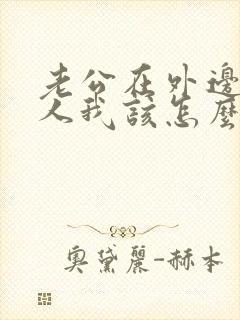 老公在外邊
人我該怎麼
奧黛麗-赫本